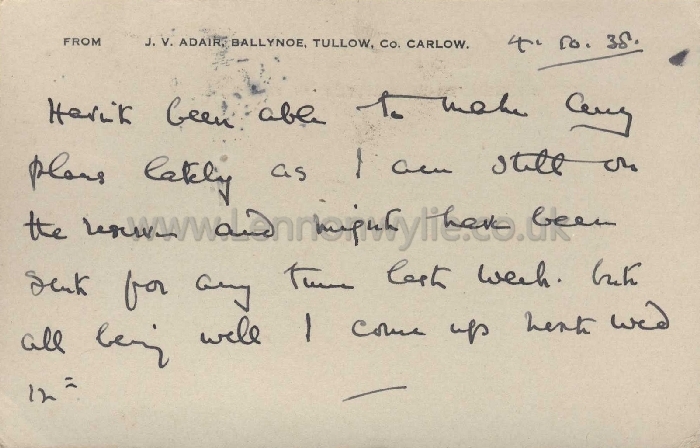 FROM J. V. ADAIR, BALLYNOE, TULLOW, Co. CARLOW. 4. 10. 38.
Havn't been able to make any
plans lately as I am still on
the reserve and might have been
www.Lennonwylie.co.uk
sent for any time last week. but
all being well I come up next Wed
12=